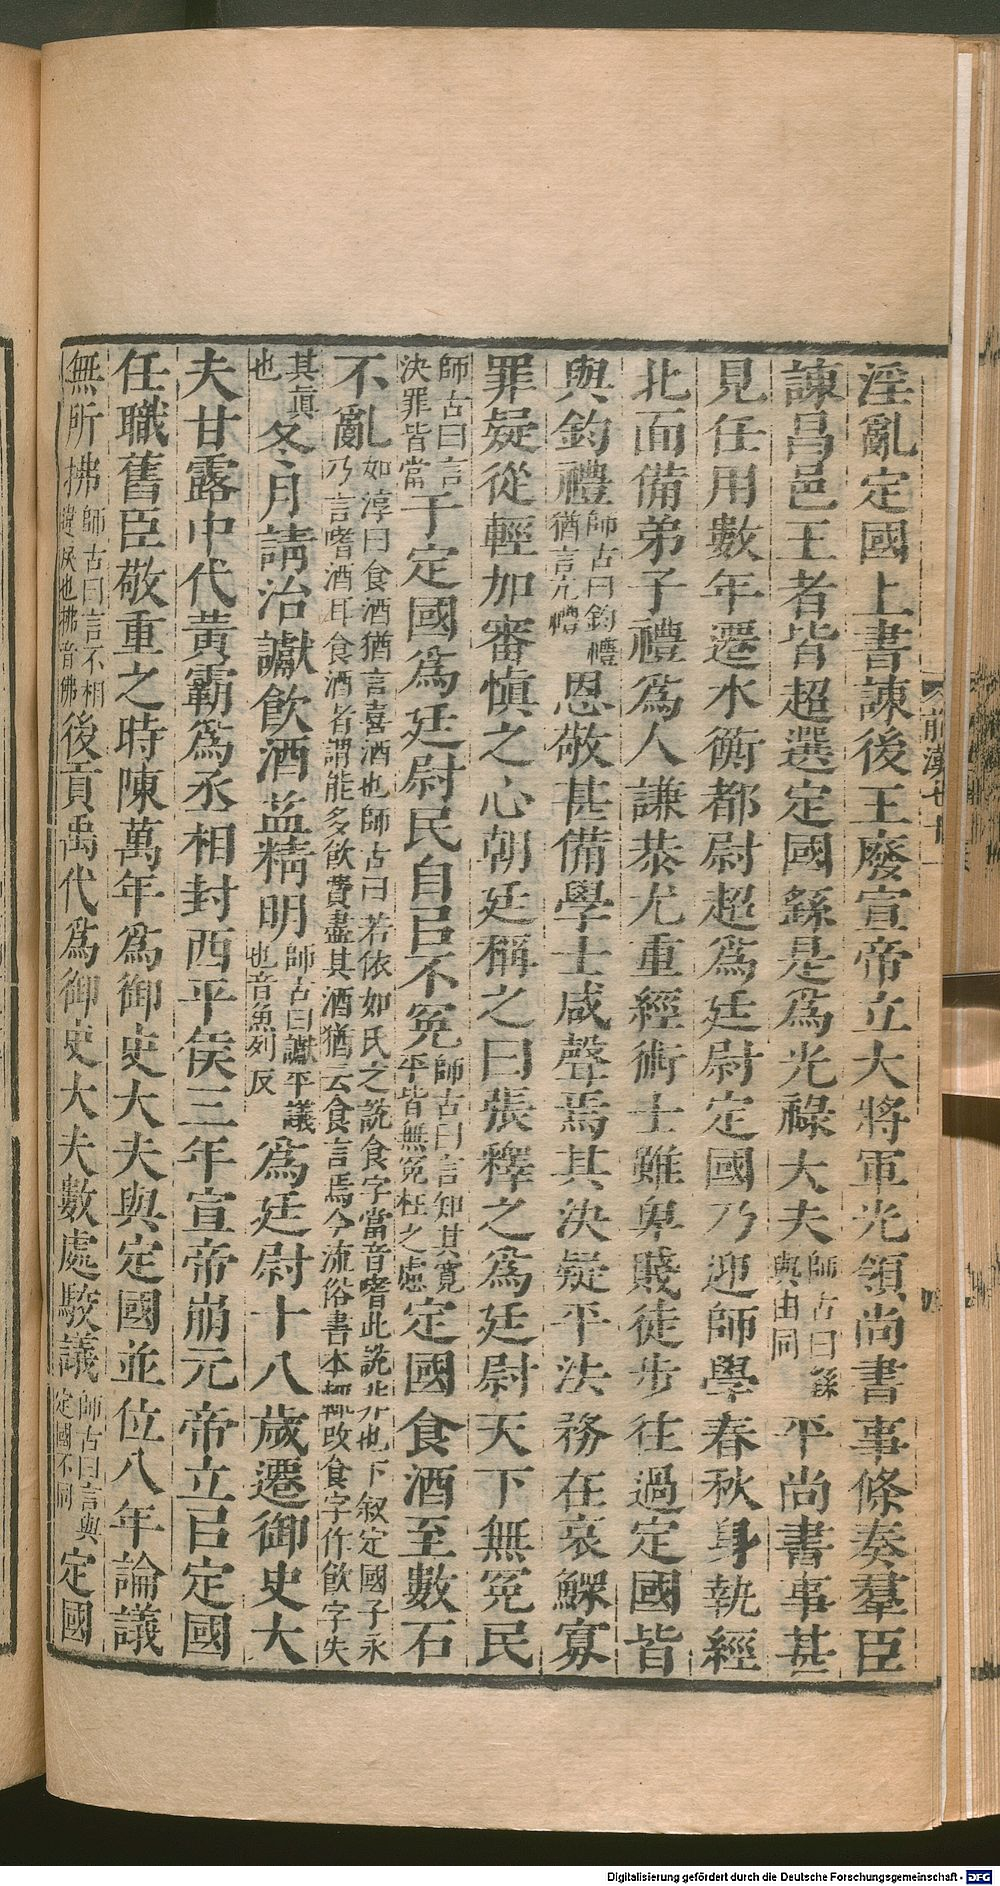 淫亂定國上書諫後王廢宣帝立大將軍光領尚書事條奏羣臣
諫昌邑王者皆超選定國繇是爲光祿大夫師古曰繇與由同平尚書事甚
見任用數年遷水衡都尉超爲廷尉定國乃迎師學春秋身執經
北面備弟子禮爲人謙恭尤重經術士雖卑賤徒步往過定國皆
與鈞禮師古曰鈞禮猶言亢禮恩敬甚備學士咸聲焉其決疑平法務在哀鰥寡
罪疑從輕加審愼之心朝廷稱之曰張釋之爲廷尉天下無冤民
師古曰言決罪皆當于定國爲廷尉民自㠯不冤師古曰言知其寬平皆無冤枉之慮定國食酒至數石
不亂如淳曰食酒猶言喜酒也師古曰若依如氏之說食字當音嗜此說非也下敍定國子永乃言嗜酒耳食酒者謂能多飮費盡其酒猶云食言焉今流俗書本輒改食字作飮字失
其眞也冬月請治讞飮酒益精明師古曰讞平議也音魚列反爲廷尉十八歲遷御史大
夫甘露中代黃霸爲丞相封西平侯三年宣帝崩元帝立㠯定國
任職舊臣敬重之時陳萬年爲御史大夫與定國並位八年論議
無所拂師古曰言不相違戾也拂音佛後貢禹代爲御史大夫數處駮議師古曰言與定國不同定國
前漢七十一
Digitalisierung gefördert durch die Deutsche Forschungsgemeinschaft - DFG